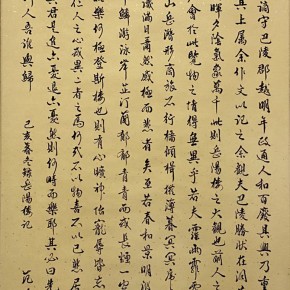 謫守巴陵郡越明年政通人和百廢具興乃重
其上属余作文以記之余觀夫巴陵勝狀在洞
暉夕陰氣象萬千此則岳陽樓之大觀也前人之
會於此覽物之情得無異乎若夫霪雨霏霏
山岳潛形商旅不行檣傾楫摧薄暮冥冥虎
讒滿目蕭然感極而悲者矣至若春和景明
鱗游泳岸芷汀蘭郁郁青青而或長煙一空
樂何極登斯樓也則有心曠神怡寵辱皆
仁人之心或異二者之為何哉不以物喜不以己悲居
君是進亦憂退亦憂然則何時而樂耶其必曰先
人吾誰與歸 己亥暮冬錄岳陽樓記 范